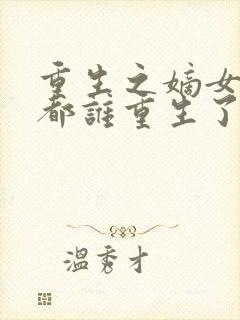 重生之嫡女
都誰重生了
溫秀才